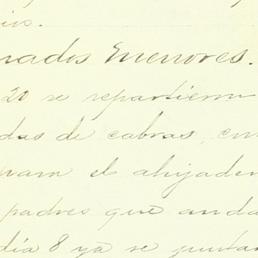 nados Menores.
20 se repartieron
das de cabras, con
el ahijader
padres que anda
día 8 ya se juntar